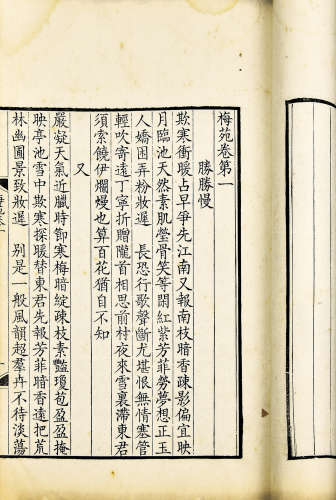 梅苑卷第一
勝勝慢
欺寒衝暖占早爭先江南又報南枝暗香疎影偏宜映
月臨池天然素肌瑩骨笑等閑紅紫芳菲勞夢想正玉
人嬌困弄粉妝遲　長恐行歌聲斷尤堪恨無情塞管
輕吹寄遠丁寧折贈隴首相思前村夜來雪裏殢東君
須索饒伊爛熳也算百花猶自不知
又
嚴凝天氣近臘時節寒梅暗綻疎枝素豔瓊苞盈盈掩
映亭池雪中欺寒探暖替東君先報芳菲暗香遠把荒
林幽圃景致妝遲　別是一般風韻超羣卉不待淡蕩